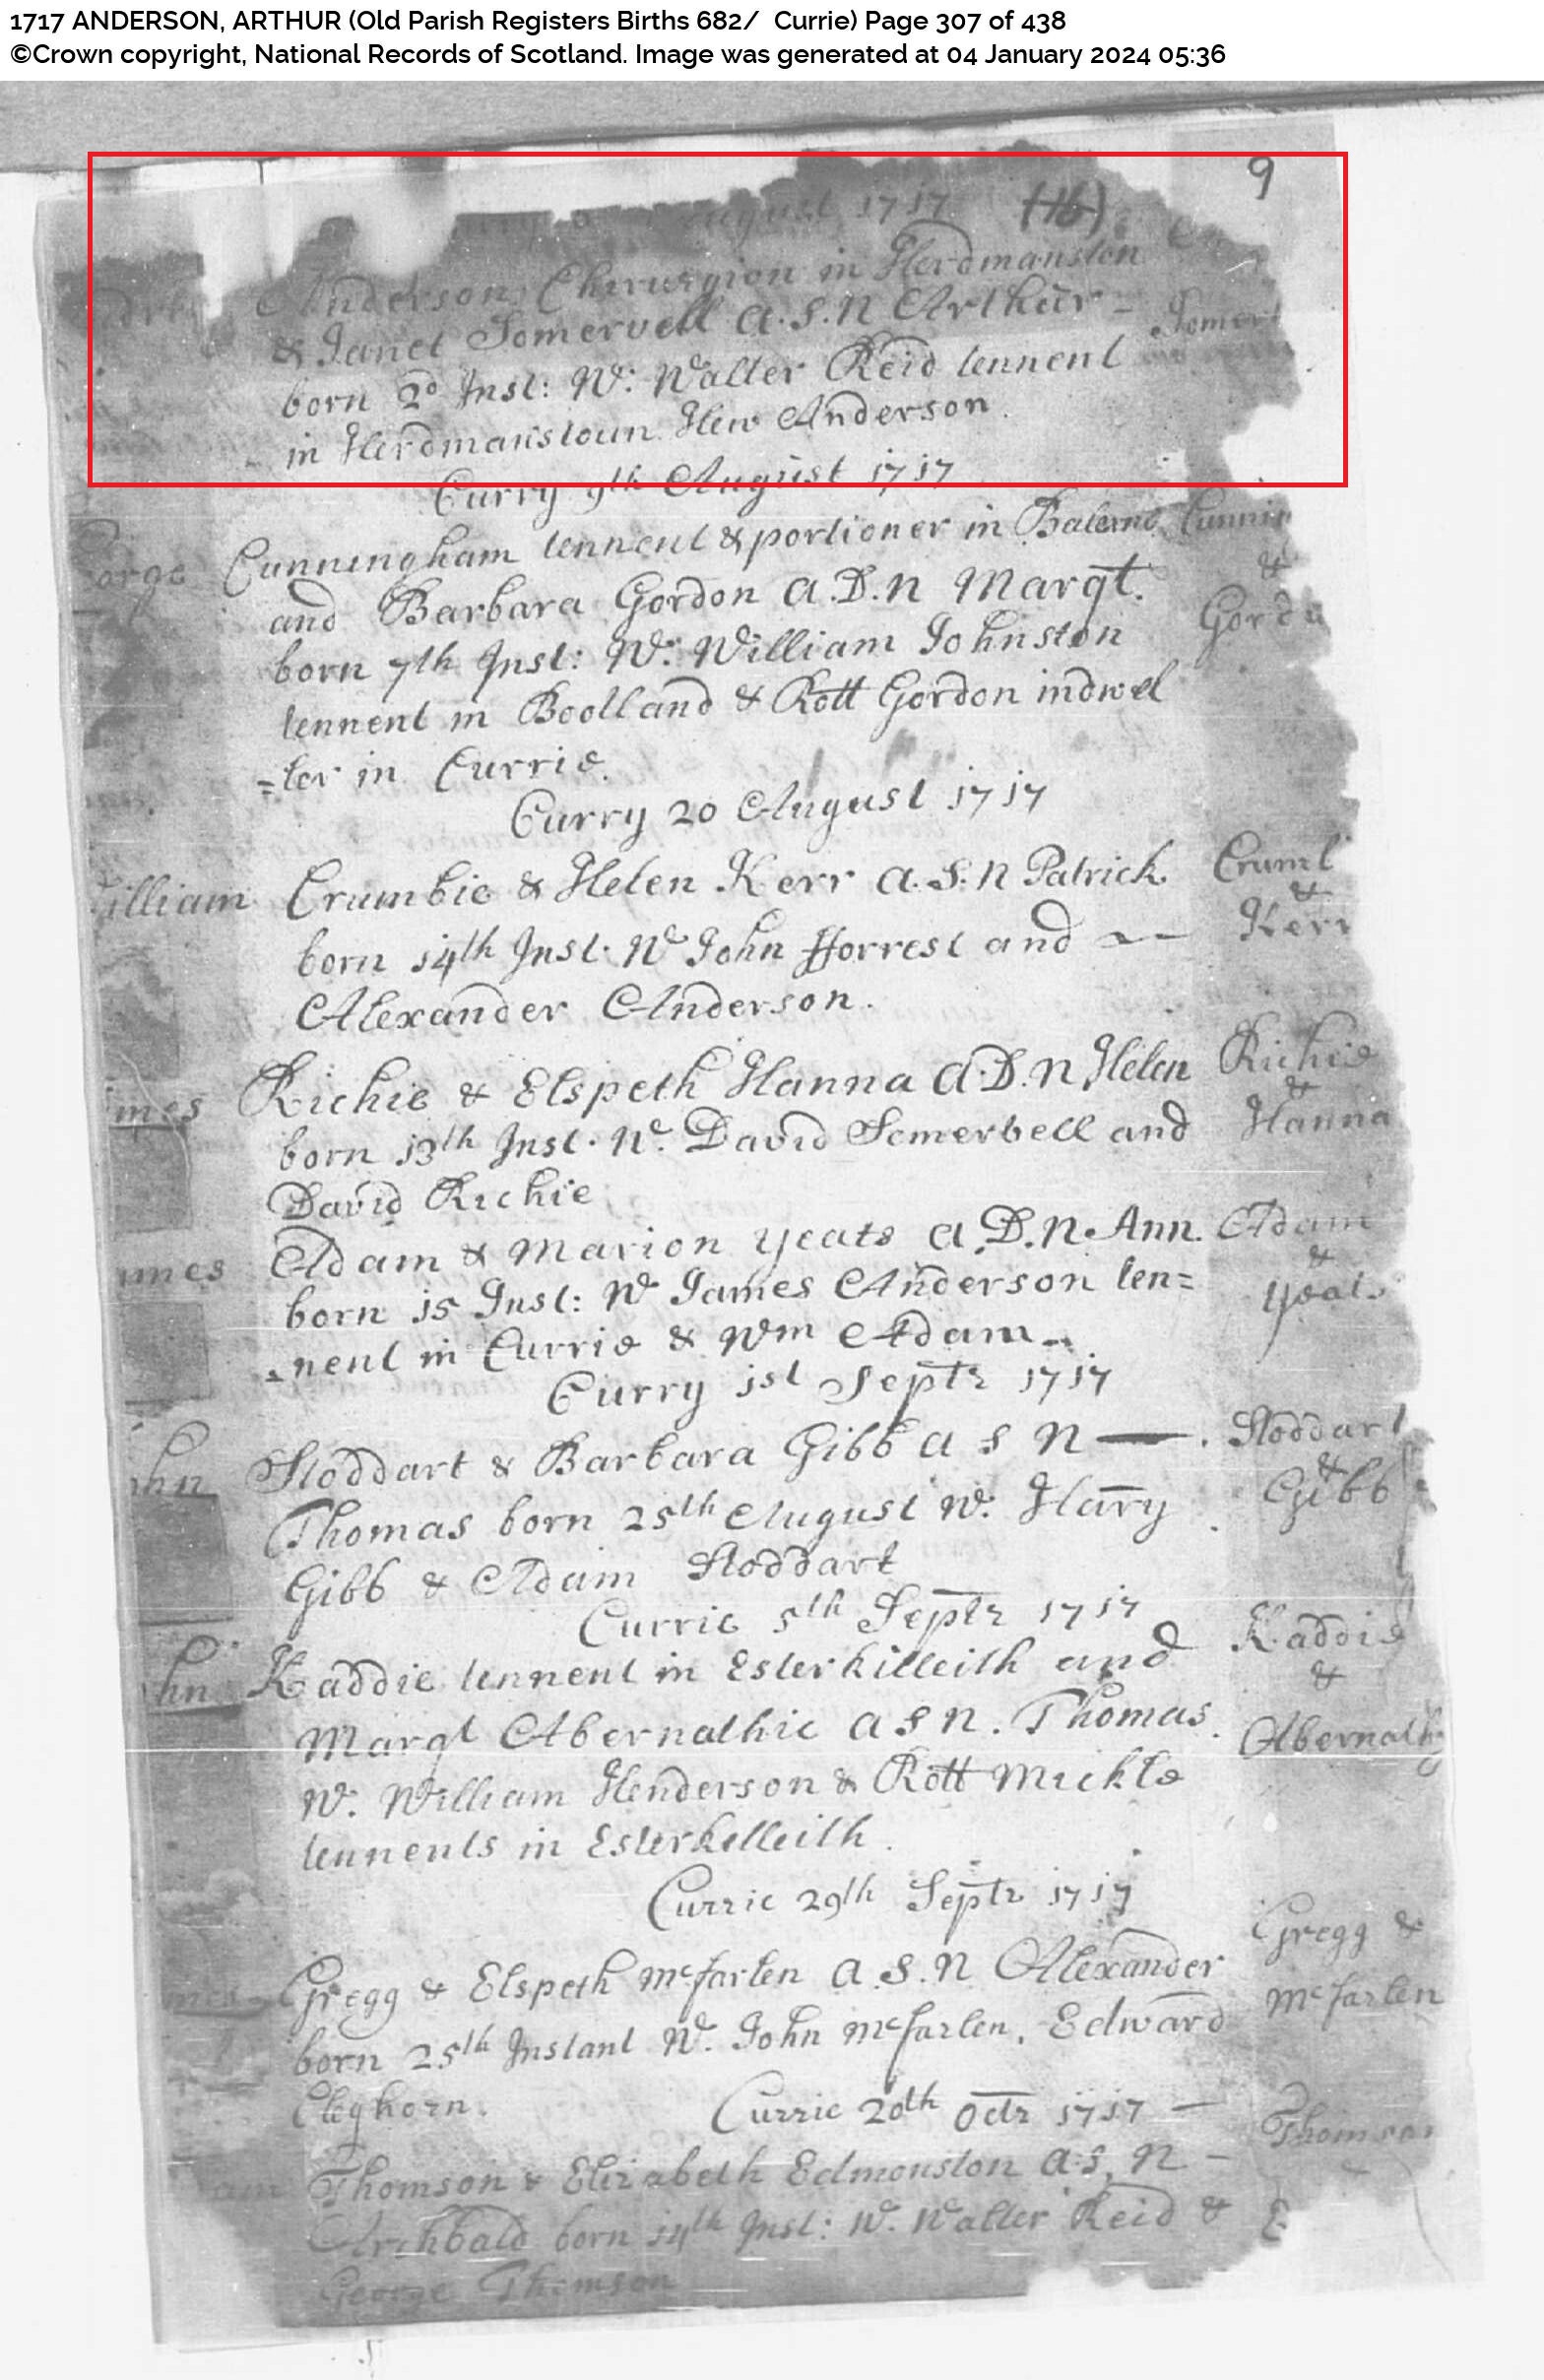 1717 ANDERSON, ARTHUR (Old Parish Registers Births 682/ Currie) Page 307 of 438
©Crown copyright, National Records of Scotland. Image was generated at 04 January 2024 05:36
9
August 1717 (16)
Anderson Chirurgion in Herdmanston
& Janet Somervell a.S.N Arthur - Somer
born 2d Inst: We: Walter Reid tennent
in Herdmanstoun Hew Anderson.
Curry 9th August 1717
orge Cunningham tennent & portioner in Balerno Cunnin
and Barbara Gordon a.D.N Margt. &
born 7th Inst: We: William Johnston Gordo
tennent in Boolland & Rott Gordon indwel
=ler in Currie.
Curry 20 August 1717
illiam Crumbie & Helen Kerr a.S.N Patrick Cruml
&
born 14th Inst. We John fforrest and Kerr
Alexander Anderson.
mes Richie & Elspeth Hanna a.D.N Helen Richie
&
born 13th Inst. We. David Somerbell and Hanna
David Richie
mes Adam & Marion Yeats a.D.N. Ann. Adam
&
born 15 Inst: We James Anderson ten= Yeat
=nent in Currie & Wm Adam
Curry 1st Septr 1717
ohn Stoddart & Barbara Gibb a S N — Stoddart
&
Thomas born 25th August W: Hary Gibb
Gibb & Adam Stoddart
Currie 5th Septr 1717
hn Kaddie tennent in Esterkilleith and Kaddie
&
Margt Abernathie a S N. Thomas. Abernathy
W. William Henderson & Rott Mickle
tennents in Esterkelleith.
Currie 29th Septr 1717
mes Gregg & Elspeth Mcfarlen a.S.N Alexander Gregg &
born 25th Instant We. John Mcfarlen, Edward Mcfarlen
Cleghorn.
Currie 20th Octr 1717 —
am Thomson & Elizabeth Edmonston a.S.N - Thomson
Archbald born 14th Inst: We. Walter Reid & E
George Thomson